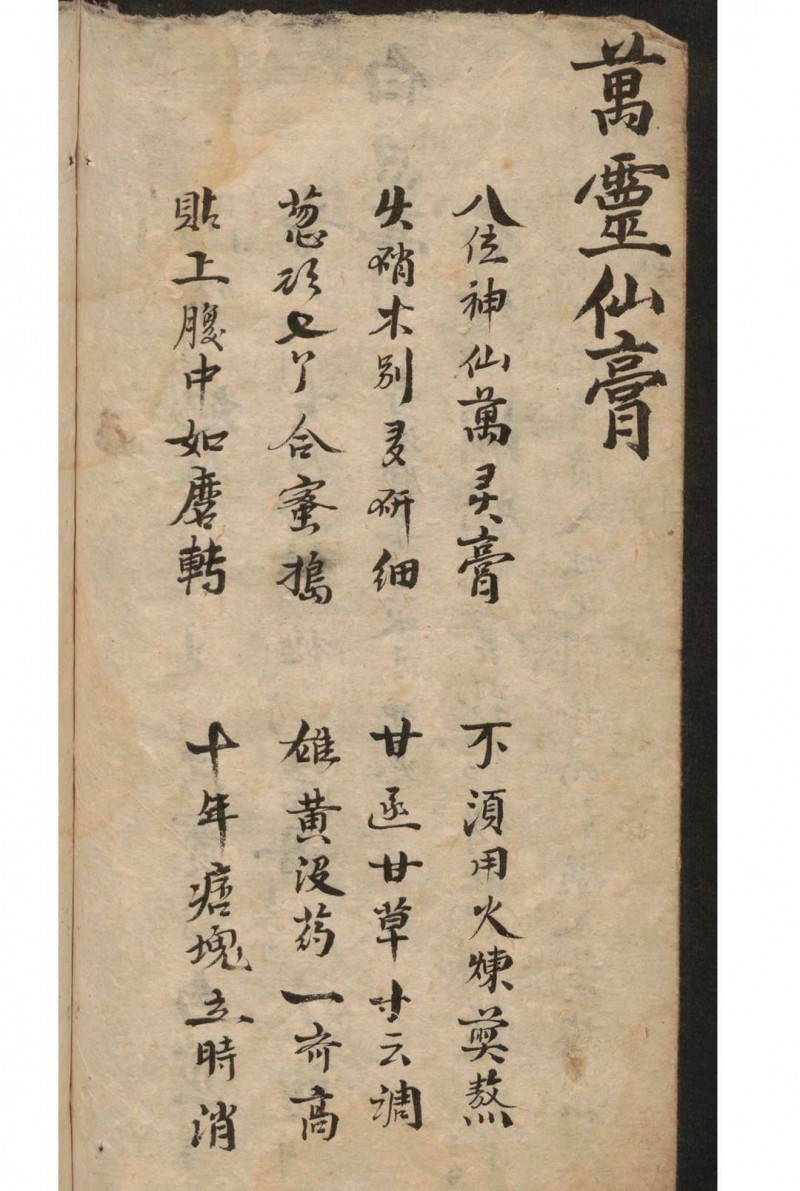 萬靈仙膏
八位神仙萬灵膏 不須用火煉煎熬
火硝木別多研細 甘遂甘草寸云調
葱頭七个合蜜搗 雄黃没药一齐高
貼上腹中如磨轉 十年痞塊立時消